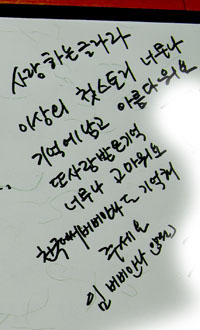 사랑하는 글라라
이상의 첫스토리 너무나
기억에 남고 아름다워요
또 사랑받은 기억
너무나 고마워요
천국에서 비비안나도 기억해
주세요
임 비비안나